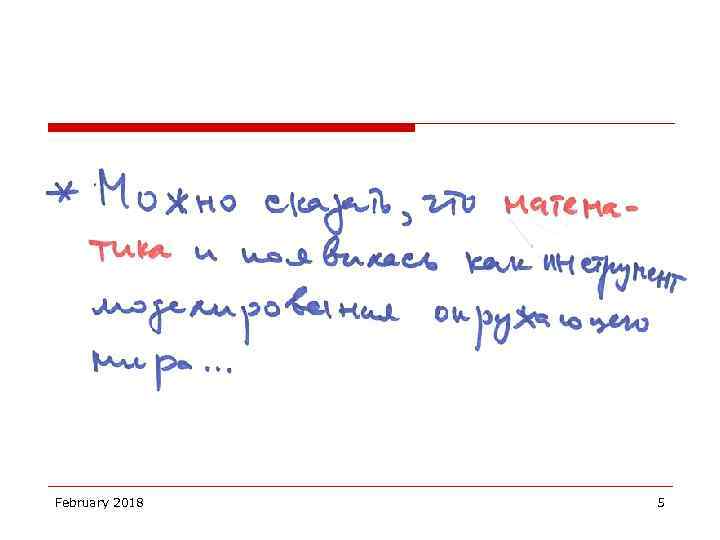 * Можно сказать, что матема-
тика и появилась как инструмент
моделирования окружающего
мира...
February 2018
5